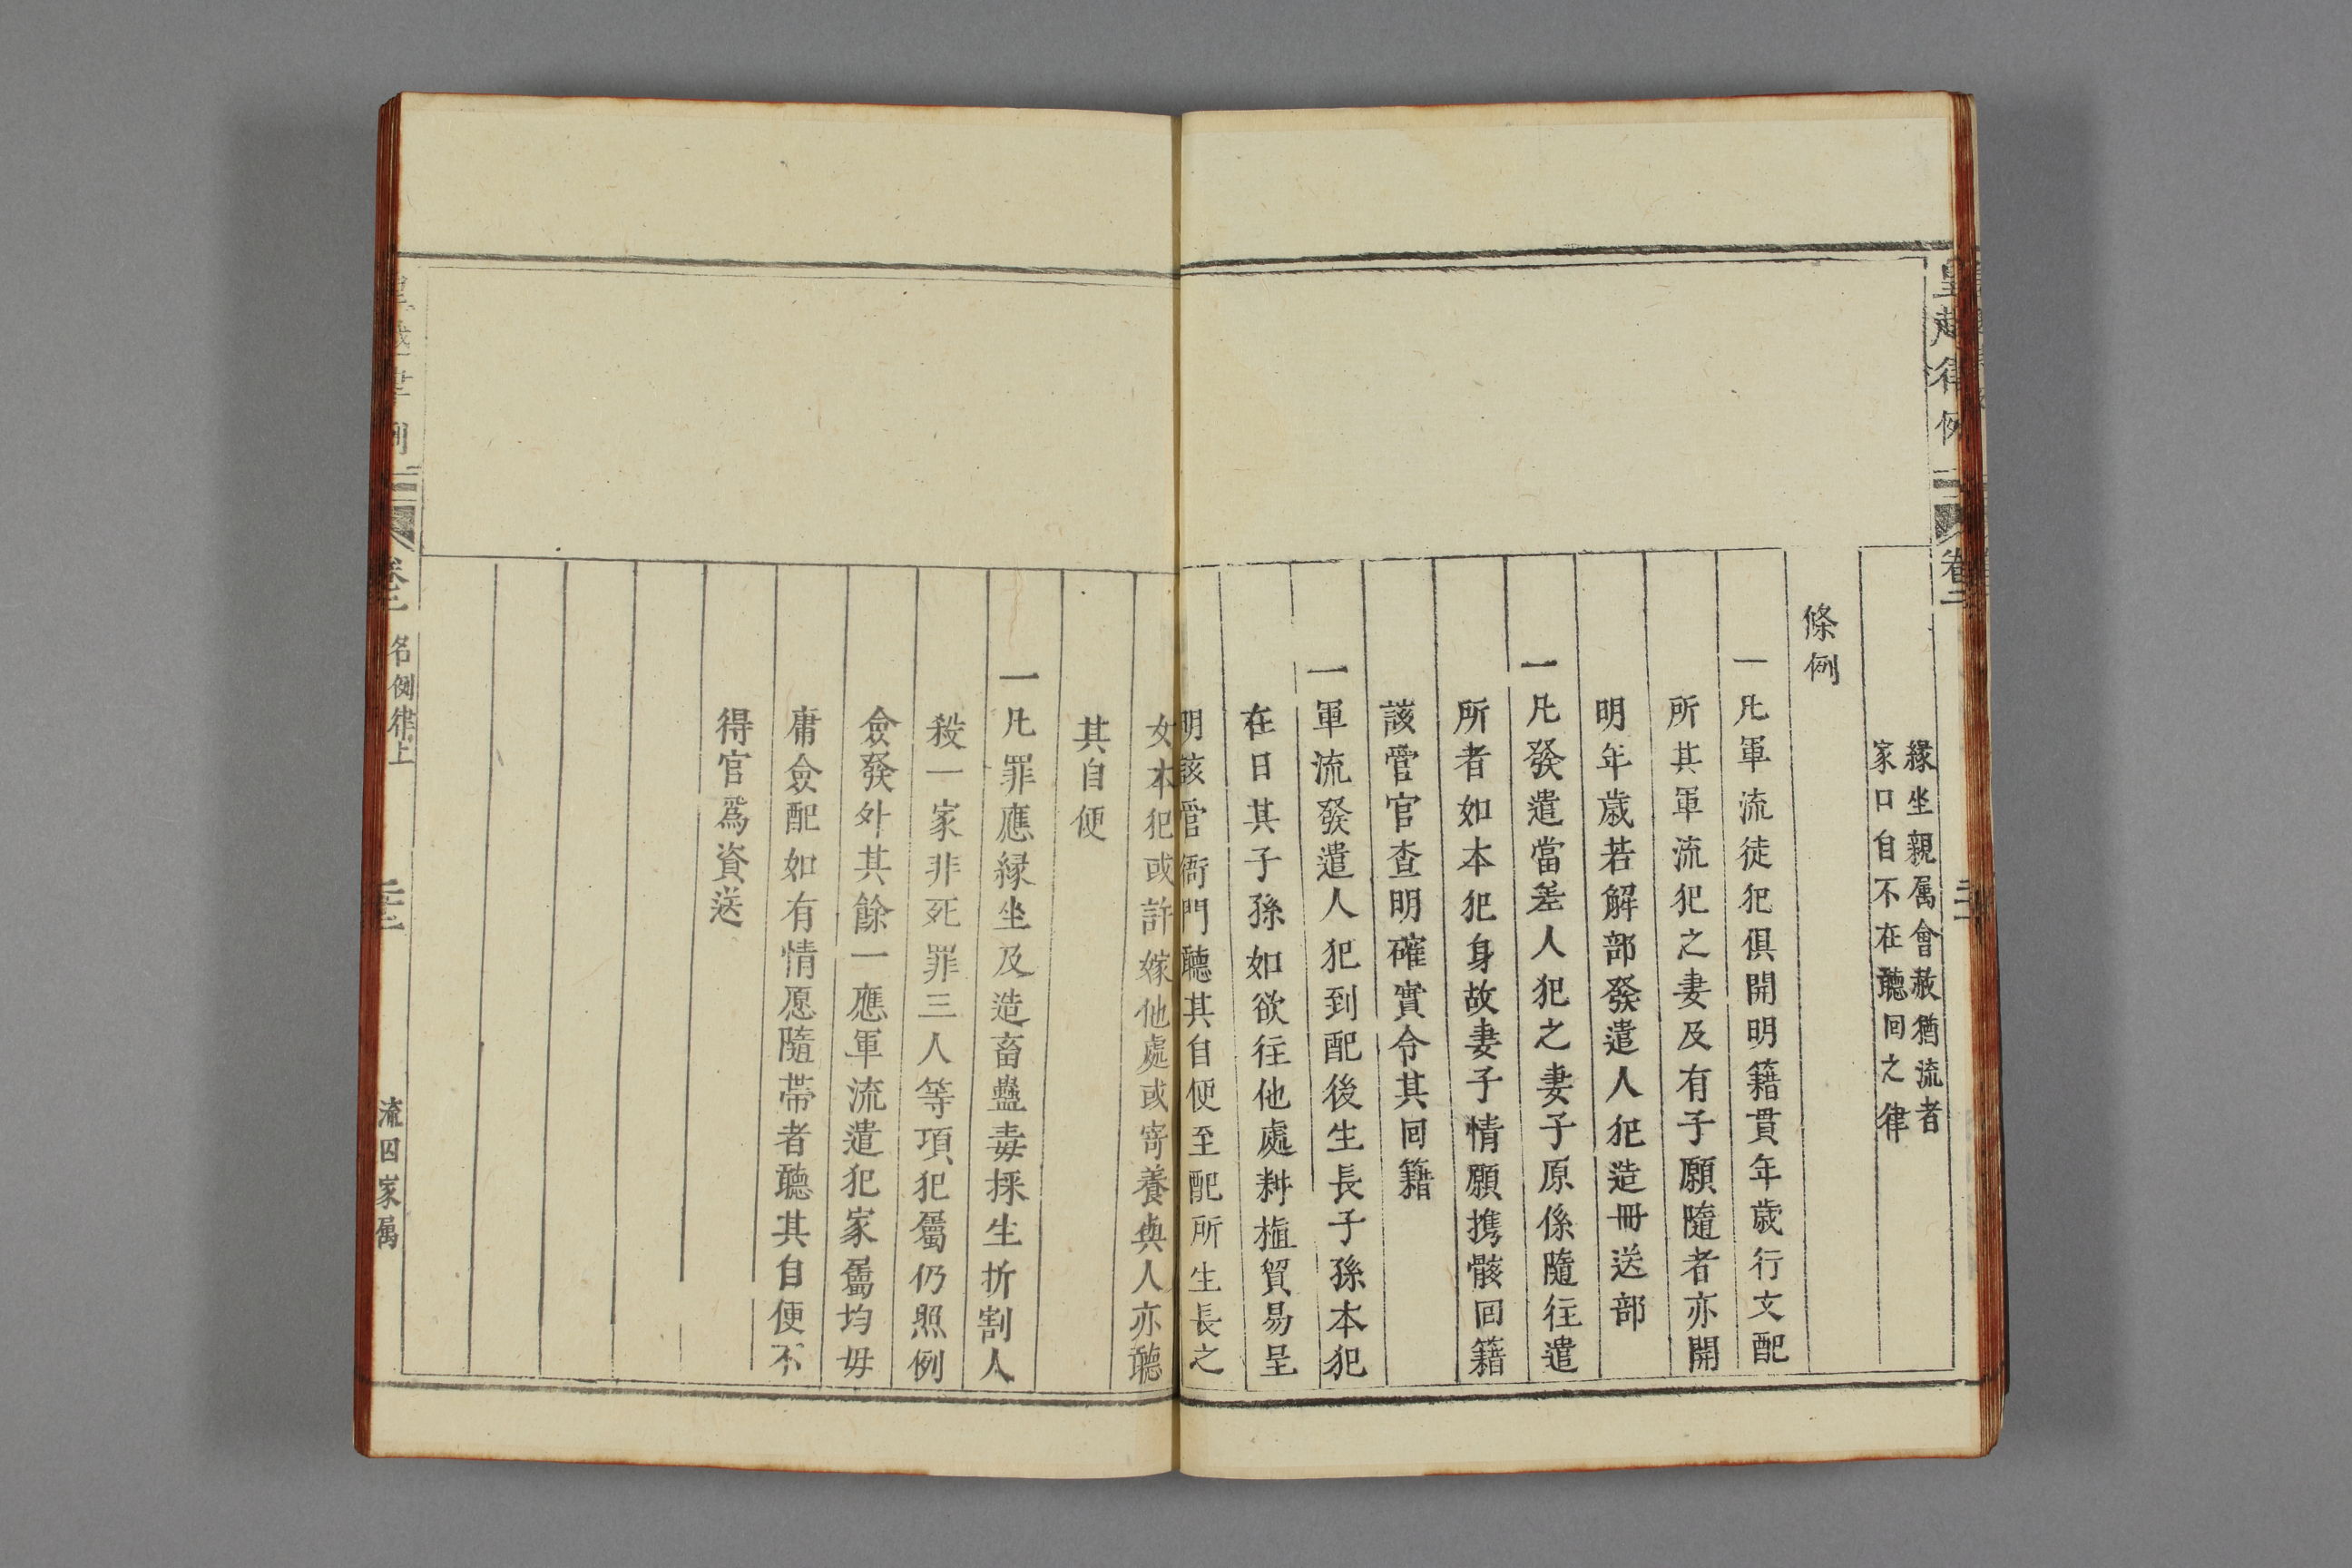 皇越律例
卷二
緣坐親属會赦猶流者
家口自不在聽回之律
條例
一凡軍流徒犯俱開明籍貫年歲行文配
所其軍流犯之妻及有子願隨者亦開
明年歲若解部發遣人犯造冊送部
一凡發遣當差人犯之妻子原係隨往遣
所者如本犯身故妻子情願携骸回籍
該管官查明確實令其回籍
一軍流發遣人犯到配後生長子孫本犯
在日其子孫如欲往他處耕植貿易呈
明該管衙門聽其自便至配所生長之
女本犯或許嫁他處或寄養與人亦聽
其自便
一凡罪應緣坐及造畜蠱毒採生折割人
殺一家非死罪三人等項犯屬仍照例
僉發外其餘一應軍流遣犯家屬均毋
庸僉配如有情愿隨帶者聽其自便不
得官爲資送
名例律上
流囚家属